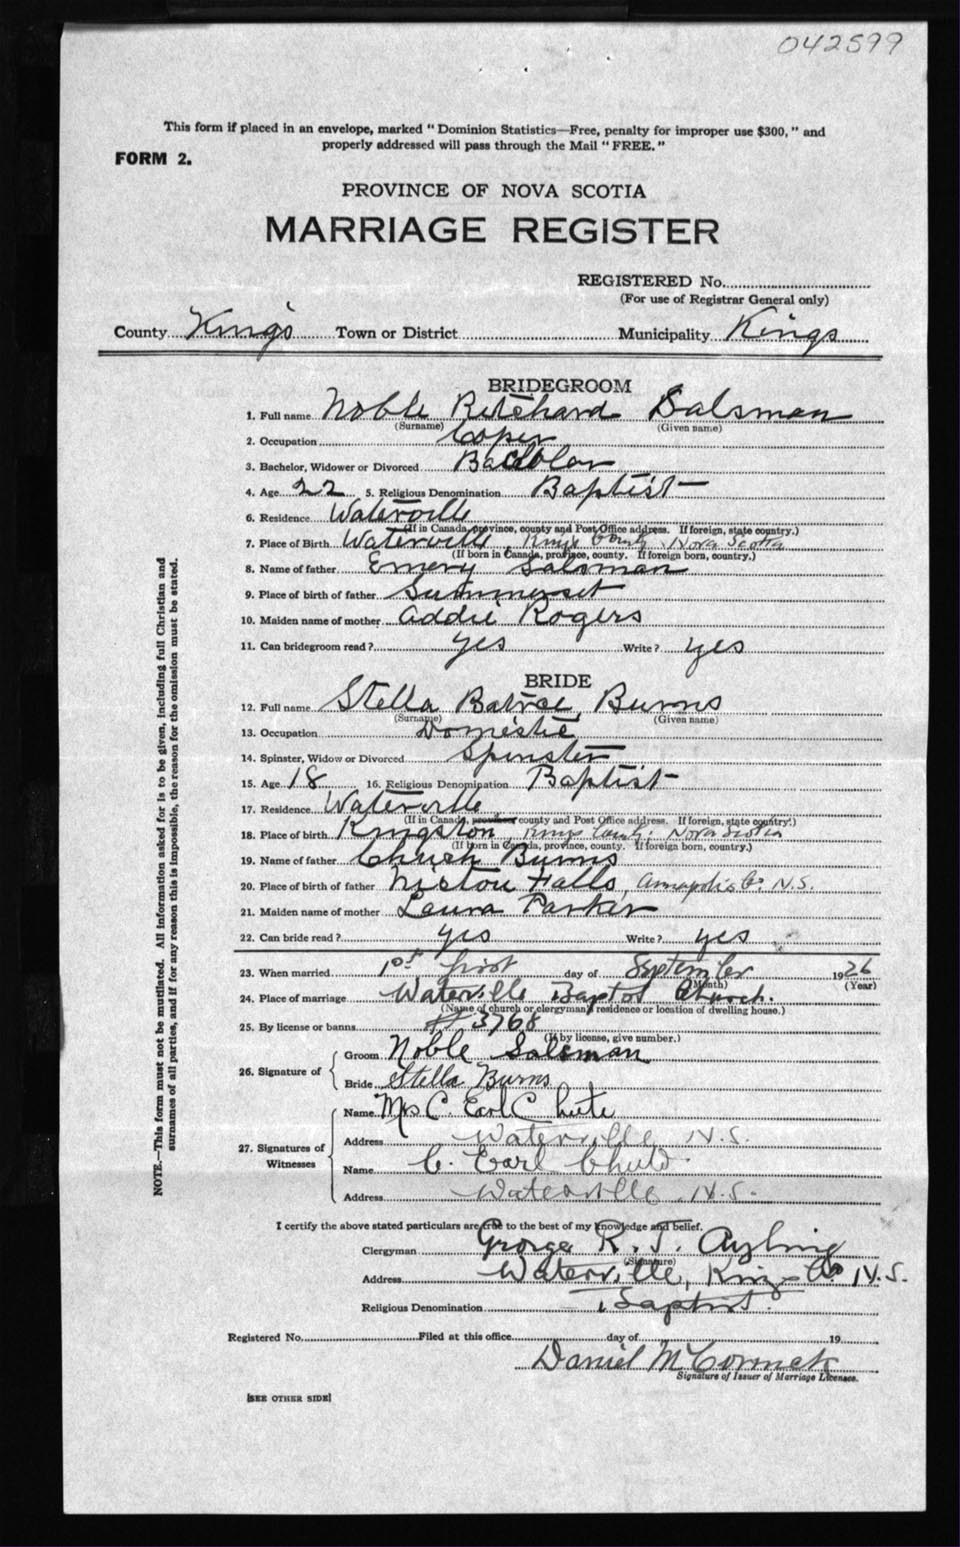 042599
This form if placed in an envelope, marked " Dominion Statistics—Free, penalty for improper use $300, " and
properly addressed will pass through the Mail " FREE. "
FORM 2.
PROVINCE OF NOVA SCOTIA
MARRIAGE REGISTER
REGISTERED No.
(For use of Registrar General only)
County Kings Town or District Municipality Kings
BRIDEGROOM
1. Full name Noble Ritchard Salsman
(Surname) (Given name)
2. Occupation Coper
3. Bachelor, Widower or Divorced
4. Age 22 5. Religious Denomination Baptist
6. Residence Waterville
(If in Canada, province, county and Post Office address. If foreign, state country.)
7. Place of Birth Waterville, Kings County, Nova Scotia
(If born in Canada, province, county. If foreign born, country.)
8. Name of father Emery Salsman
9. Place of birth of father Summerset
10. Maiden name of mother Addie Rogers
11. Can bridegroom read? yes Write? yes
BRIDE
12. Full name Stella Burns
(Surname) (Given name)
13. Occupation Domestic
14. Spinster, Widow or Divorced Spinster
15. Age 18 16. Religious Denomination Baptist
17. Residence Waterville
(If in Canada, province county and Post Office address. If foreign, state country.)
18. Place of birth Kingston, Kings County. Nova Scotia
(If born in Canada, province, county. If foreign born, country.)
19. Name of father Burns
20. Place of birth of father Falls, Annapolis Co. N.S.
21. Maiden name of mother Laura Parker
22. Can bride read? yes Write? yes
23. When married 1st first day of September 1926
(Month) (Year)
24. Place of marriage Waterville Baptst Church.
(Name of church or clergyman's residence or location of dwelling house.)
25. By license or banns # 3768
(If by license, give number.)
26. Signature of
Groom Noble Salsman
Bride Stella Burns
27. Signatures of Witnesses
Name Mrs C. Earl Chute
Address Waterville N.S.
Name C. Earl Chute
Address Waterville N.S.
I certify the above stated particulars are true to the best of my knowledge and belief.
Clergyman George R. T. Ayling
(Signature)
Address Waterville, Kings Co N.S.
Religious Denomination Baptist.
Registered No. Filed at this office day of 19
Daniel McCormick
Signature of Issuer of Marriage Licenses.
[SEE OTHER SIDE]
NOTE.—This form must not be mutilated. All information asked for is to be given, including full Christian and
surnames of all parties, and if for any reason this is impossible, the reason for the omission must be stated.